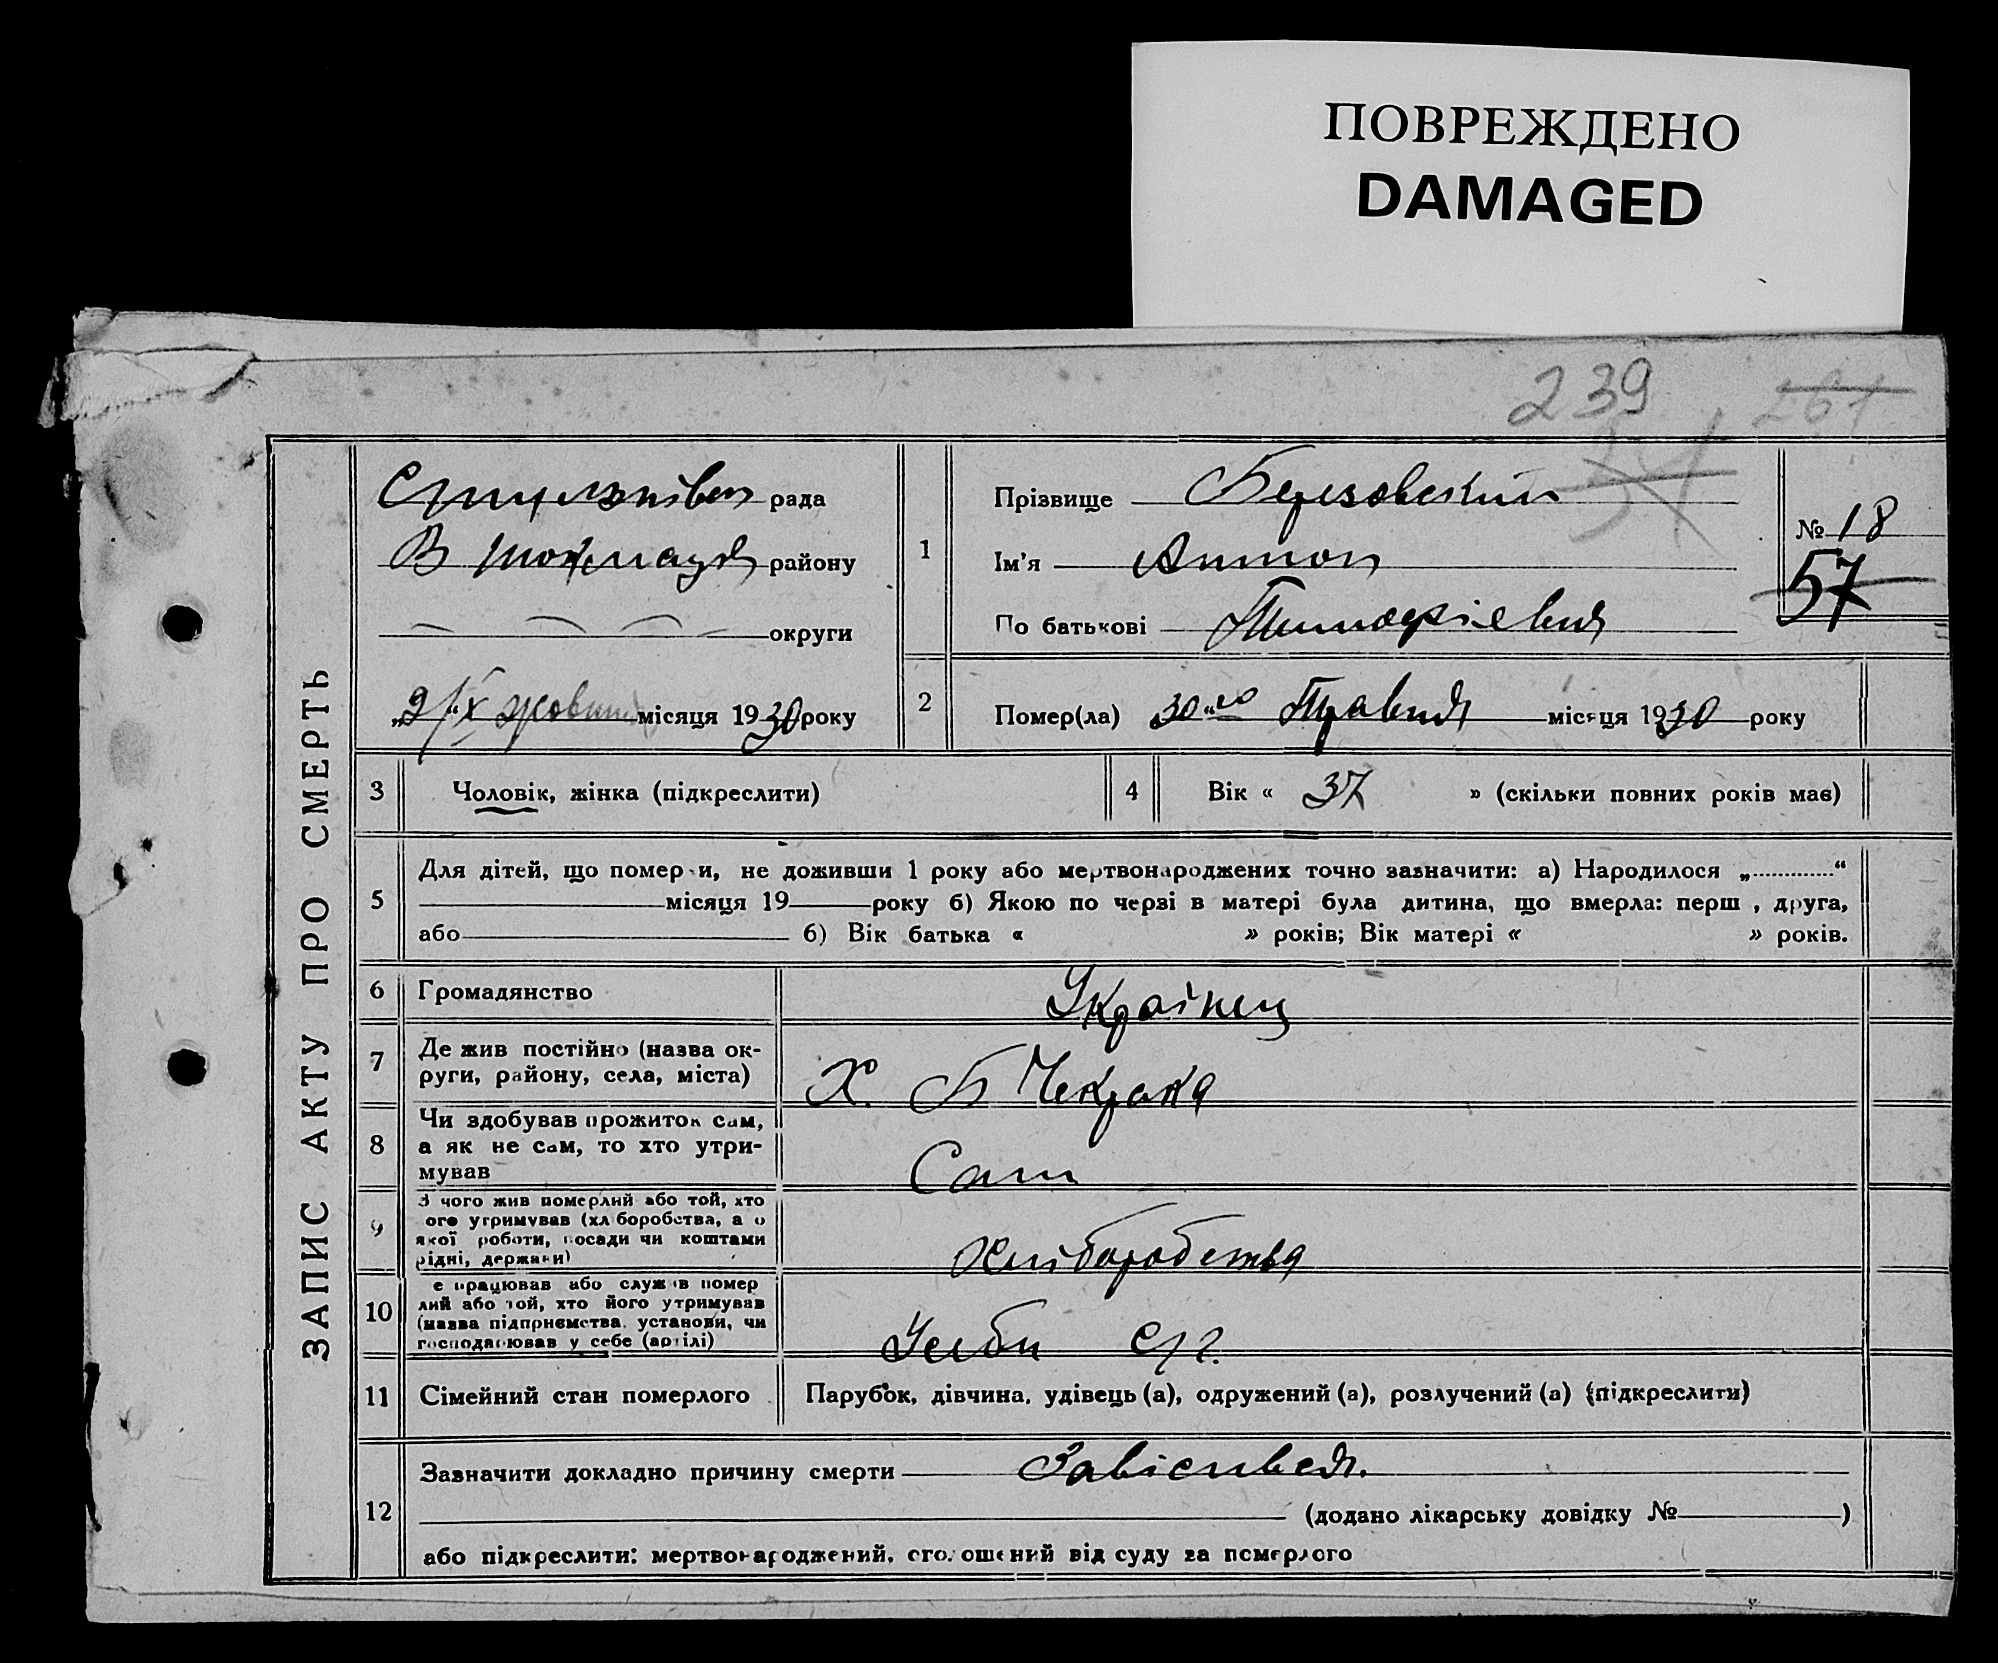 ПОВРЕЖДЕНО
DAMAGED
239
261
ЗАПИС АКТУ ПРО СМЕРТЬ
рада
В Токмацьк району
округи
місяця 1930 року
1
Прізвище Березовский
Ім'я Антон
По батькові Тимофіевич
№ 18
57
2
Помер(ла) 30 го Травня місяця 1930 року
3
Чоловік, жінка (підкреслити)
4
Вік « 37 » (скільки повних років має)
5
Для дітей, що померли, не доживши 1 року або мертвонароджених точно зазначити: а) Народилося „ “
місяця 19 року б) Якою по черзі в матері була дитина, що вмерла: перш , друга,
або б) Вік батька « » років; Вік матері « » років.
6
Громадянство
Українец
7
Де жив постійно (назва ок-
руги, району, села, міста)
Х. Б Чекрака
8
Чи здобував прожиток сам,
а як не сам, то хто утри-
мував
Сам
9
З чого жив померлий або той, хто
ого утримував (хліборобства, а о
якої роботи, посади чи коштами
рідні, держави)
Хліборобства
10
е працював або служив помер
лий або той, хто його утримував
(назва підприємства, установи, чи
господарював у себе (артілі)
У себи с/г.
11
Сімейний стан померлого
Парубок, дівчина, удівець (а), одружений (а), розлучений (а) (підкреслити)
12
Зазначити докладно причину смерти Завісився.
(додано лікарську довідку № )
або підкреслити: мертвонароджений, оголошений від суду за померлого